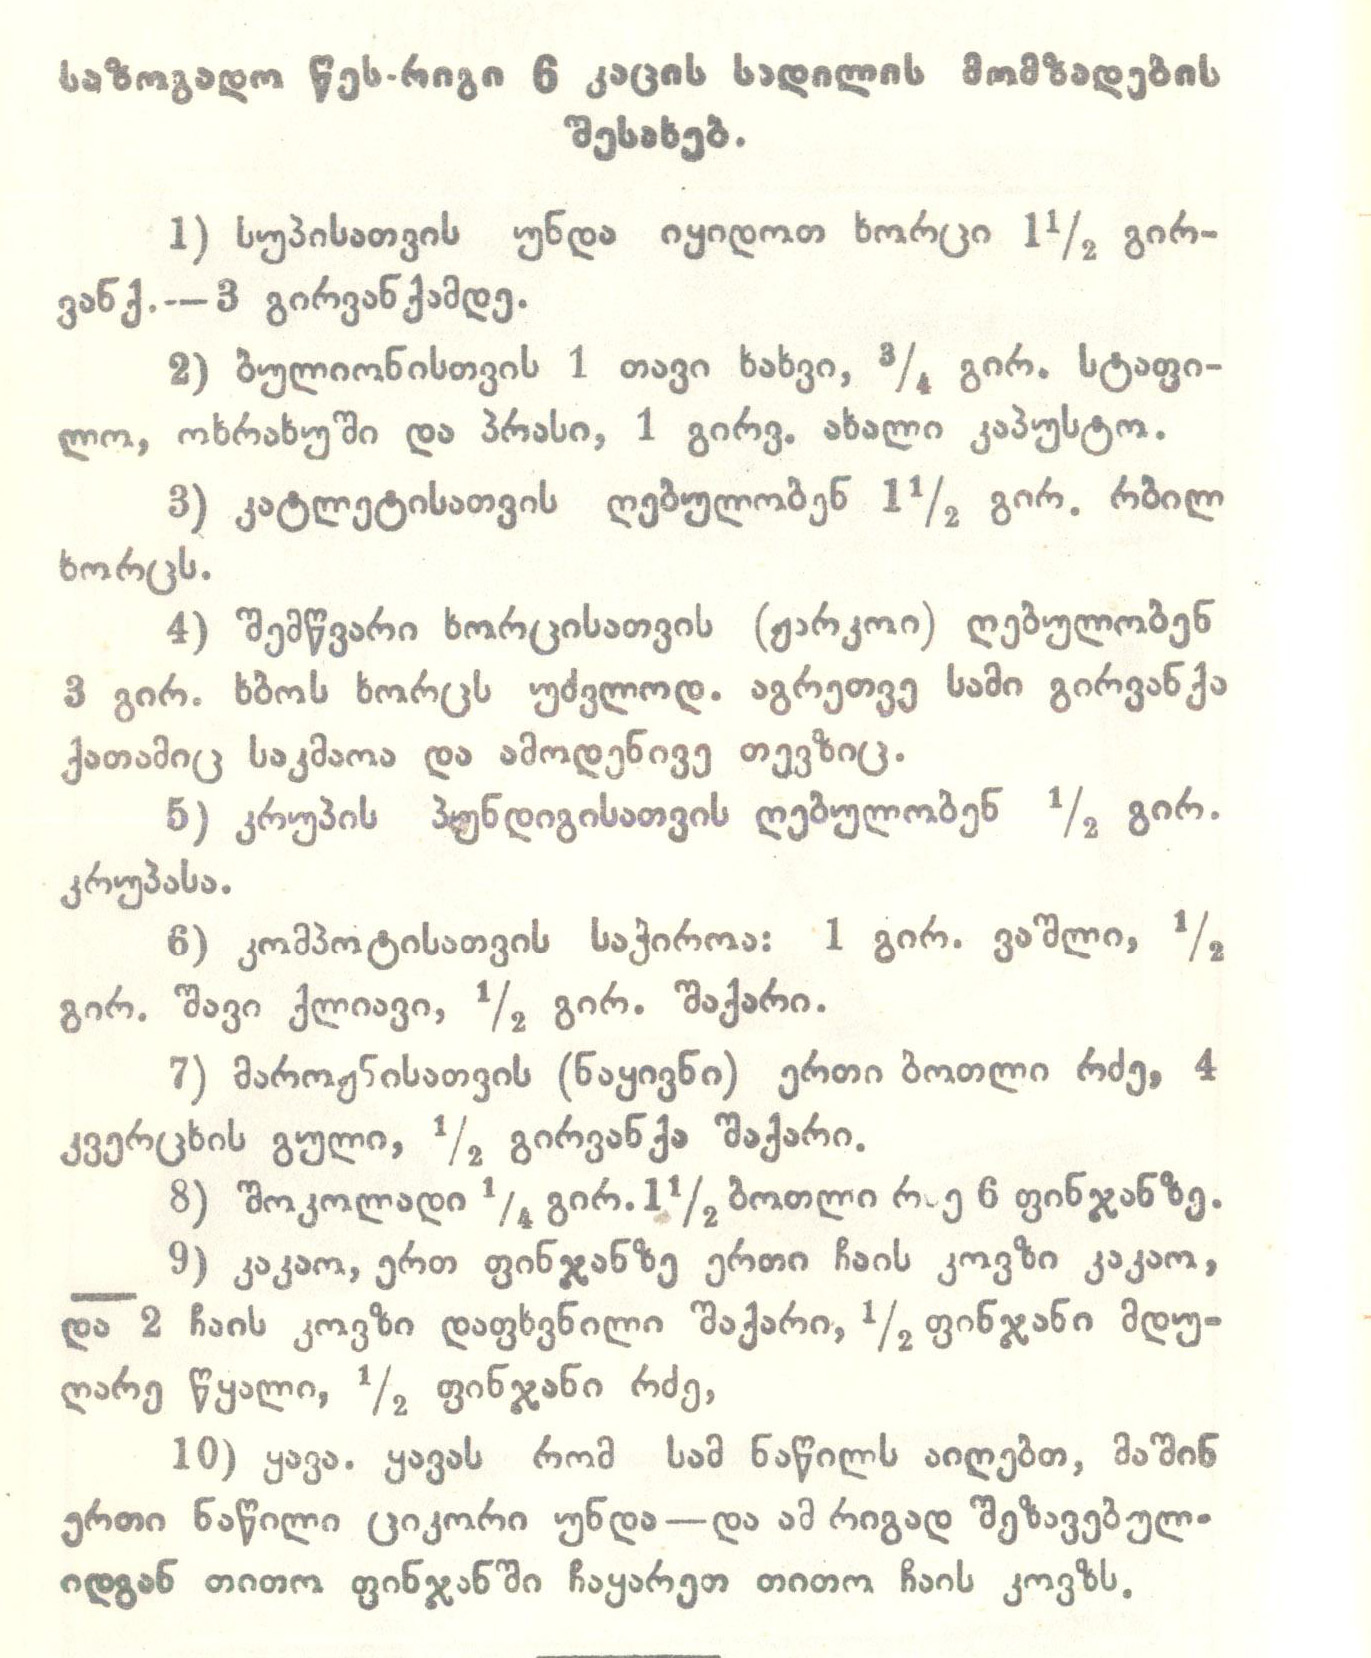 საზოგადო წეს-რიგი 6 კაცის სადილის მომზადების
შესახებ.
1) სუპისათვის უნდა იყიდოთ ხორცი 1¹/₂ გირ-
ვანქ.—3 გირვანქამდე.
2) ბულიონისთვის 1 თავი ხახვი, ³/₄ გირ. სტაფი-
ლო, ოხრახუში და პრასი, 1 გირვ. ახალი კაპუსტო.
3) კატლეტისათვის ღებულობენ 1¹/₂ გირ. რბილ
ხორცს.
4) შემწვარი ხორცისათვის (ჟარკოი) ღებულობენ
3 გირ. ხბოს ხორცს უძვლოდ. აგრეთვე სამი გირვანქა
ქათამიც საკმაოა და ამოდენივე თევზიც.
5) კრუპის პუნდიგისათვის ღებულობენ ¹/₂ გირ.
კრუპასა.
6) კომპოტისათვის საჭიროა: 1 გირ. ვაშლი, ¹/₂
გირ. შავი ქლიავი, ¹/₂ გირ. შაქარი.
7) მაროჟნისათვის (ნაყივნი) ერთი ბოთლი რძე, 4
კვერცხის გული, ¹/₂ გირვანქა შაქარი.
8) შოკოლადი ¹/₄ გირ. 1¹/₂ ბოთლი 6 ფინჯანზე.
9) კაკაო, ერთ ფინჯანზე ერთი ჩაის კოვზი კაკაო,
და 2 ჩაის კოვზი დაფხვნილი შაქარი, ¹/₂ ფინჯანი მდუ-
ღარე წყალი, ¹/₂ ფინჯანი რძე,
10) ყავა. ყავას რომ სამ ნაწილს აიღებთ, მაშინ
ერთი ნაწილი ციკორი უნდა—და ამ რიგად შეზავებულ-
იდგან თითო ფინჯანში ჩაყარეთ თითო ჩაის კოვზს.